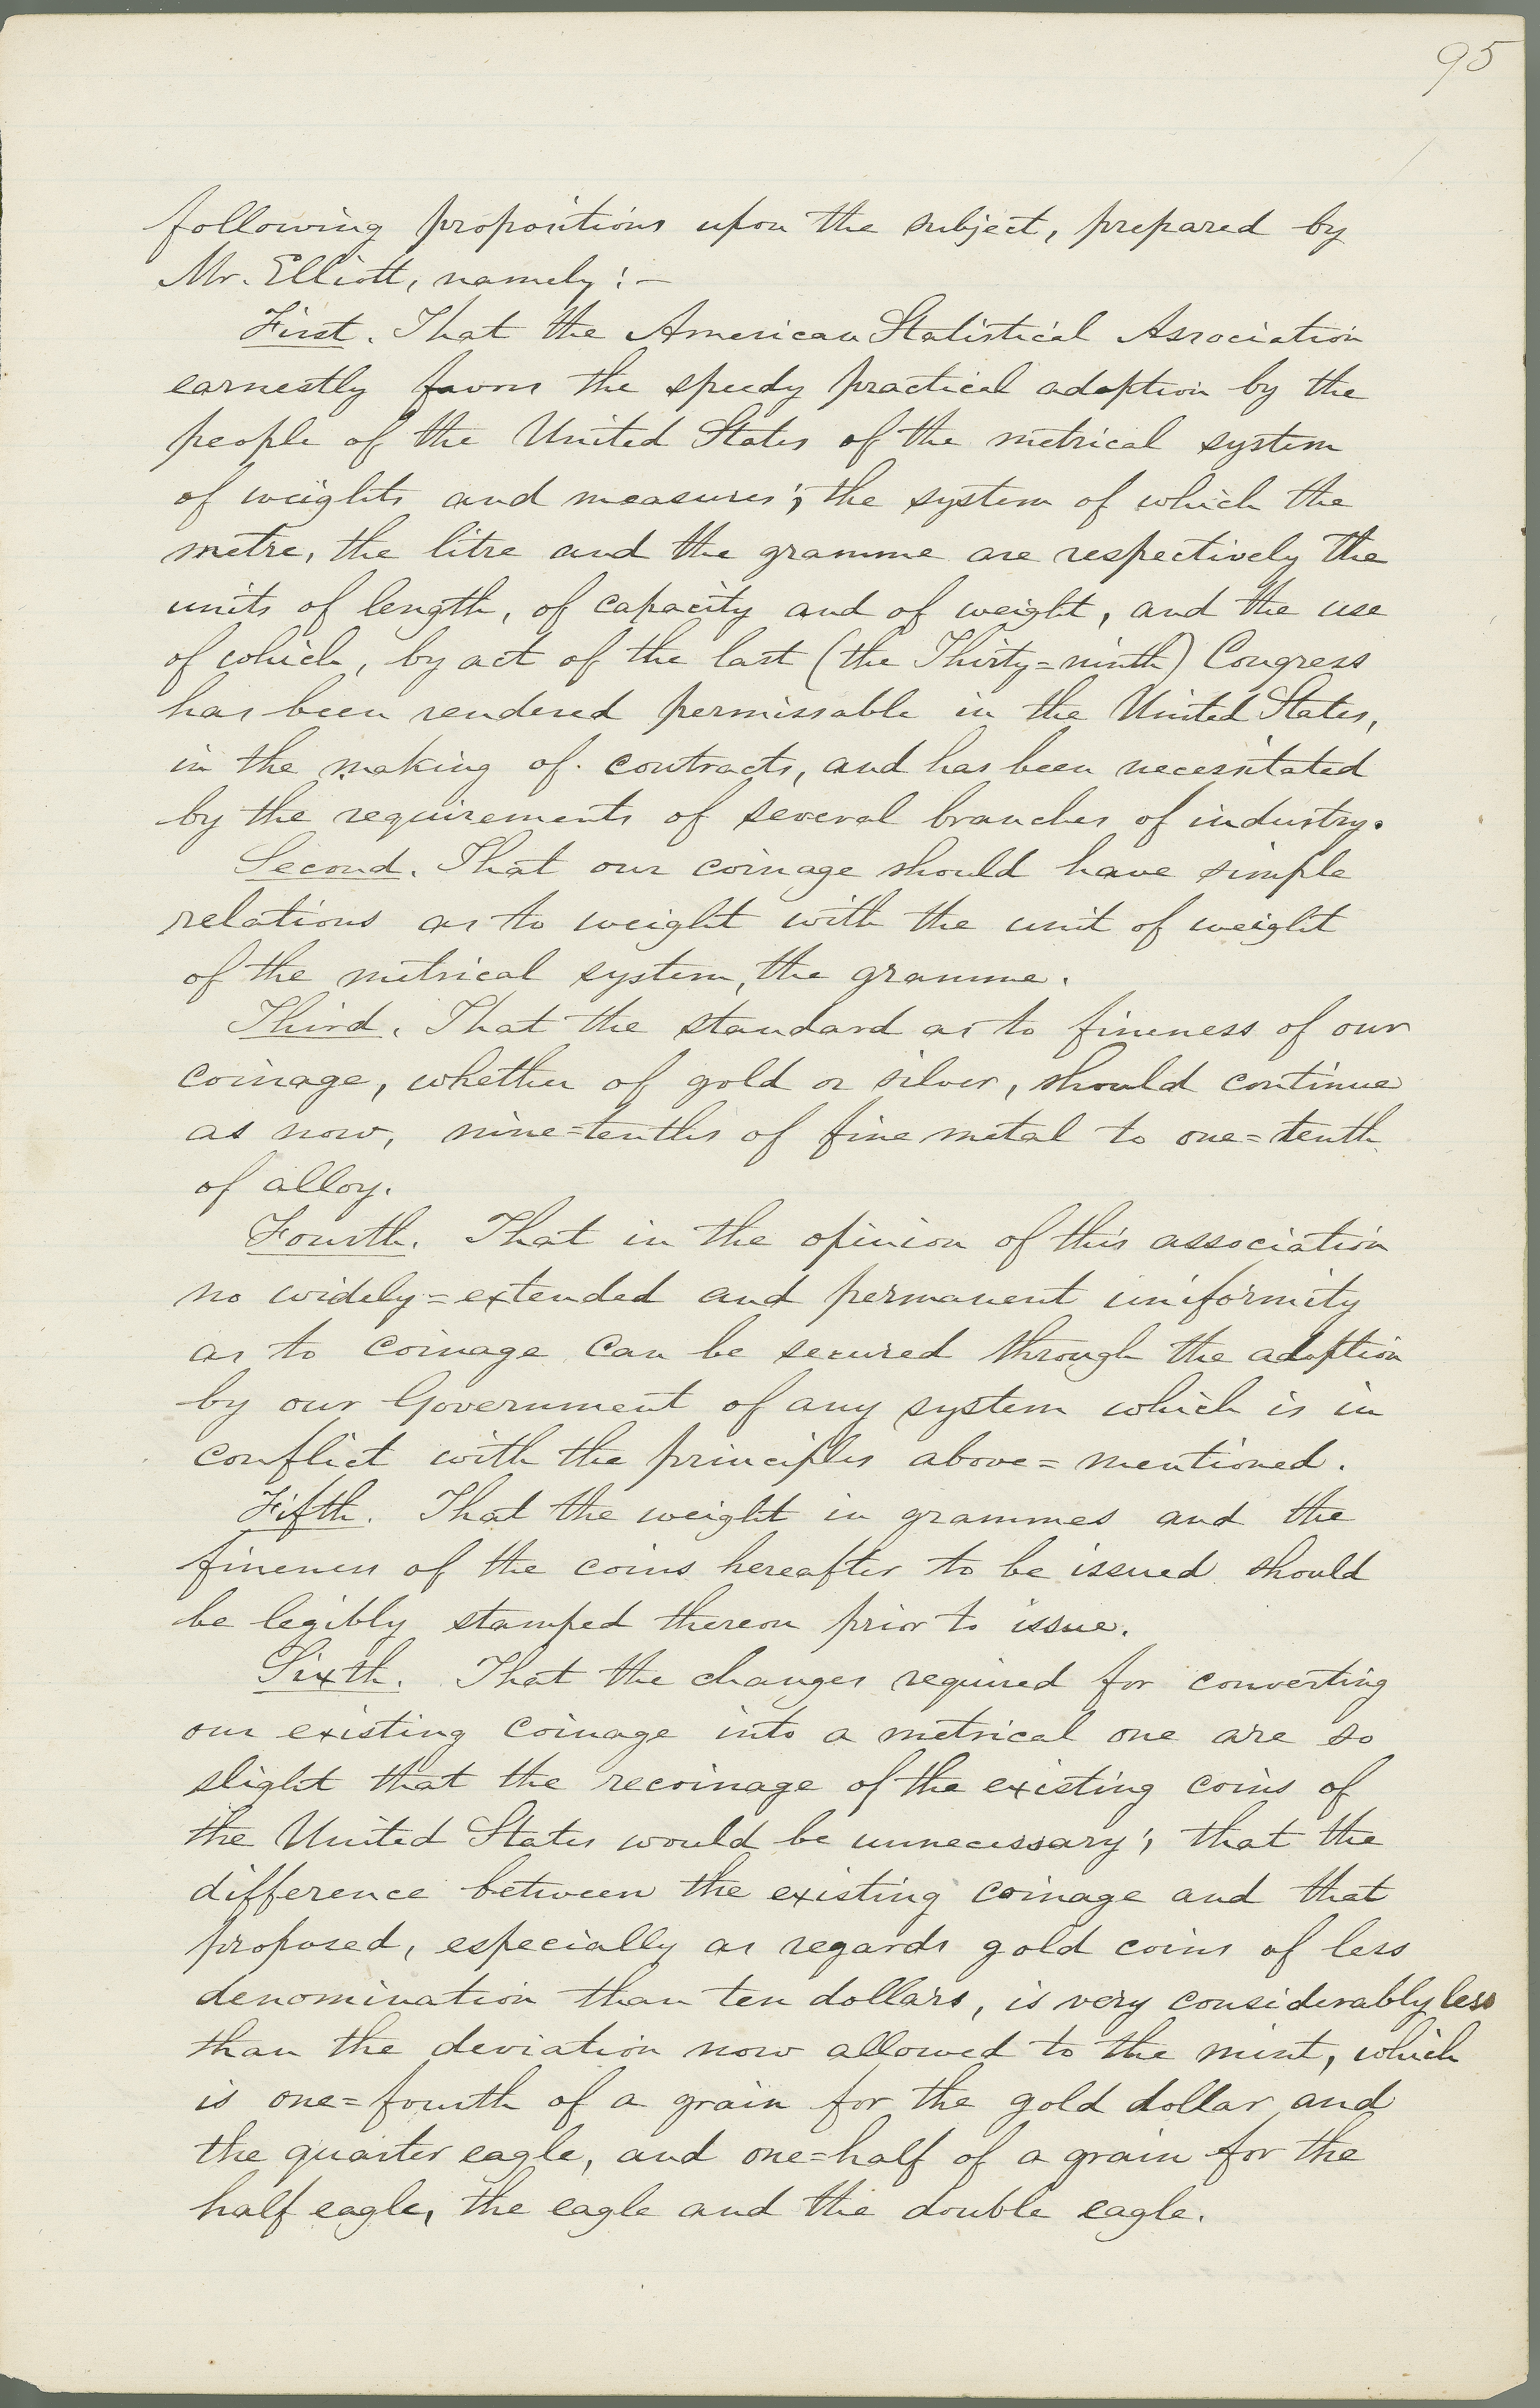 95
following propositions upon the subject, prepared by
Mr. Elliott, namely:—
First. That the American Statistical Association
earnestly favors the speedy practical adoption by the
people of the United States of the metrical system
of weights and measures; the system of which the
metre, the litre and the gramme are respectively the
units of length, of capacity and of weight, and the use
of which, by act of the last (the Thirty=ninth) Congress
has been rendered permissable in the United States,
in the making of contracts, and has been necessitated
by the requirements of several branches of industry.
Second. That our coinage should have simple
relations as to weight with the unit of weight
of the metrical system, the gramme.
Third. That the standard as to fineness of our
coinage, whether of gold or silver, should continue
as now, nine=tenths of fine metal to one=tenth
of alloy.
Fourth. That in the opinion of this association
no widely=extended and permanent uniformity
as to coinage can be secured through the adoption
by our Government of any system which is in
conflict with the principles above=mentioned.
Fifth. That the weight in grammes and the
fineness of the coins hereafter to be issued should
be legibly stamped thereon prior to issue.
Sixth. That the changes required for converting
our existing coinage into a metrical one are so
slight that the recoinage of the existing coins of
the United States would be unnecessary; that the
difference between the existing coinage and that
proposed, especially as regards gold coins of less
denomination than ten dollars, is very considerably less
than the deviation now allowed to the mint, which
is one=fourth of a grain for the gold dollar and
the quarter eagle, and one=half of a grain for the
half eagle, the eagle and the double eagle.